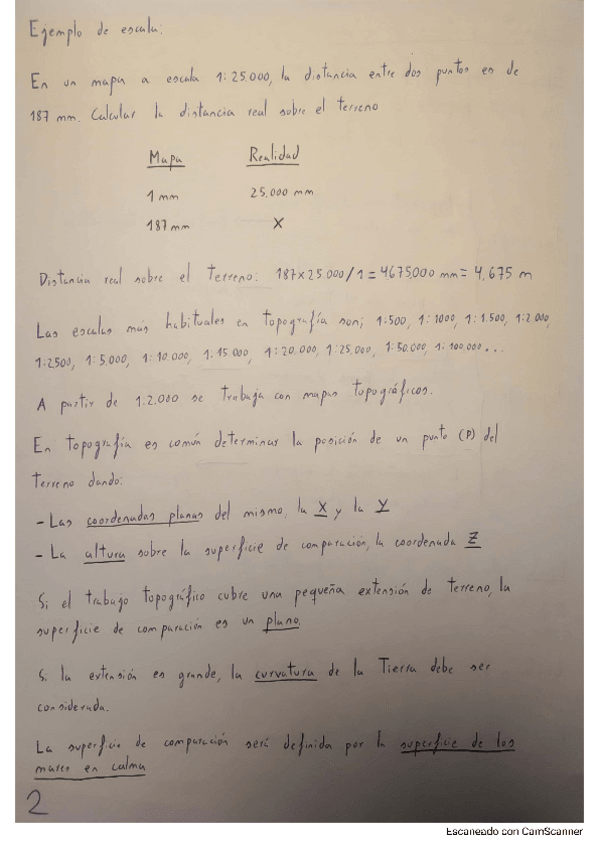 Ejemplo de escala:
En un mapa a escala 1:25.000, la distancia entre dos puntos es de
187 mm. Calcular la distancia real sobre el terreno
Mapa Realidad
1 mm 25.000 mm
187 mm X
Distancia real sobre el terreno: 187x25.000/1 = 4.675.000 mm = 4.675 m
Las escalas más habituales en topografía son; 1:500, 1:1000, 1:1.500, 1:2.000,
1:2500, 1:5.000, 1:10.000, 1.15.000, 1:20.000, 1:25.000, 1:50.000, 1:100.000...
A partir de 1:2.000 se trabaja con mapas topográficos.
En topografía es común determinar la posición de un punto (P) del
terreno dando:
- Las coordenadas planas del mismo, la X y la Y
- La altura sobre la superficie de comparación, la coordenada Z
Si el trabajo topográfico cubre una pequeña extensión de terreno, la
superficie de comparación es un plano.
Si la extensión es grande, la curvatura de la Tierra debe ser
considerada.
La superficie de comparación será definida por la superficie de los
mares en calma
2
Escaneado con CamScanner